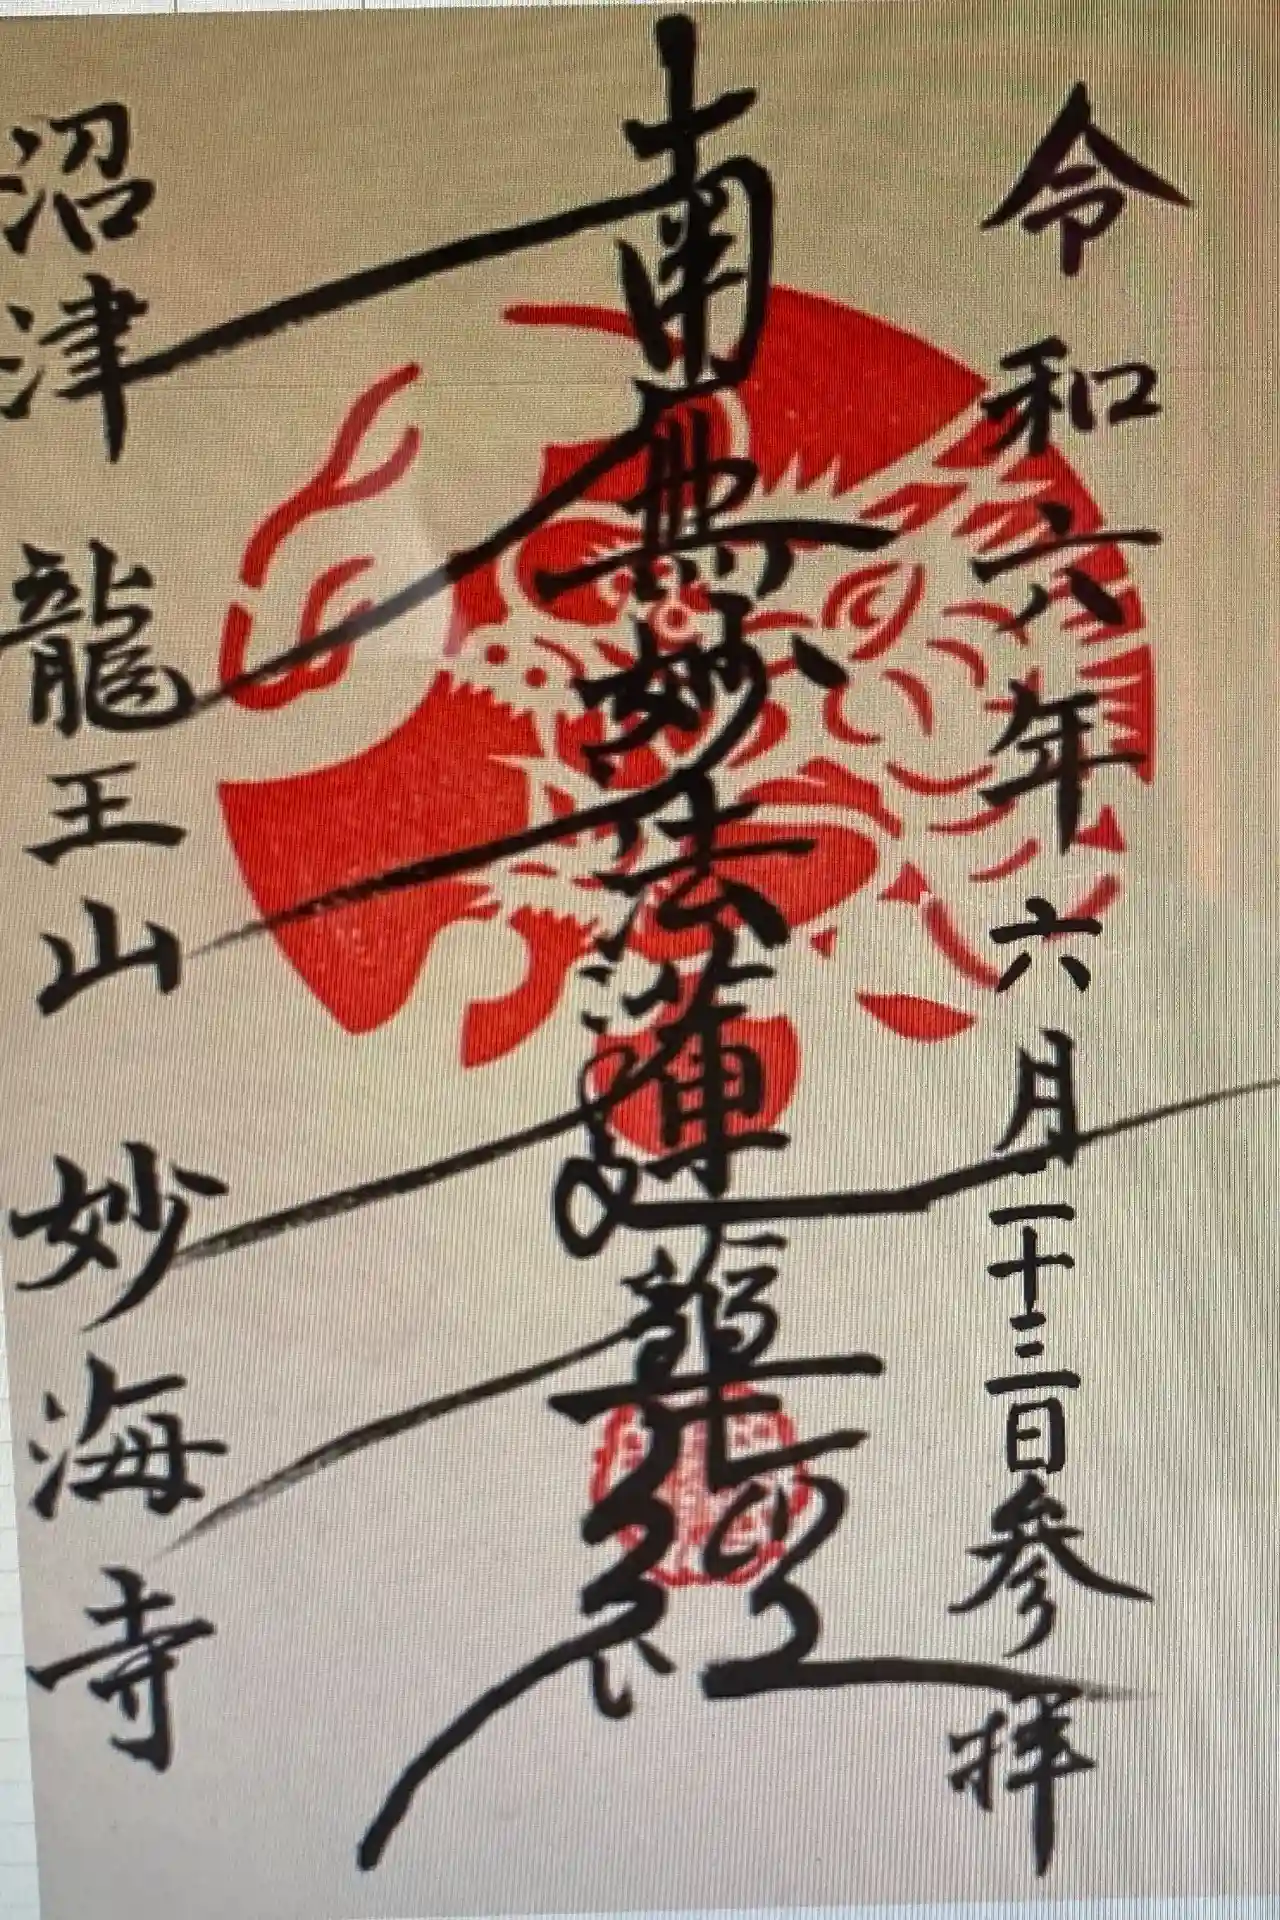 令和六年六月一十三日参拝
南無妙法蓮華経
沼津 龍王山 妙海寺